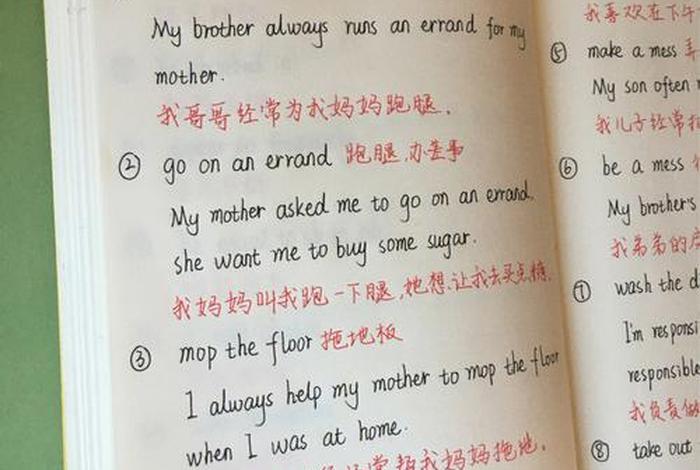 My brother always runs an errand for my
mother.
我哥哥经常为我妈妈跑腿.
② go on an errand 跑腿,办差事
My mother asked me to go on an errand.
she want me to buy some sugar.
我妈妈叫我跑一下腿,她想让我去买点糖.
③ mop the floor 拖地板
I always help my mother to mop the floor
when I was at home.
帮我妈妈拖地.
我喜欢在下午
⑤ make a mess 弄
My son often
我儿子经常
⑥ be a mess
My brother's
我弟弟的
⑦ wash the d
I'm responsi
responsible
我负责做
⑧ take out